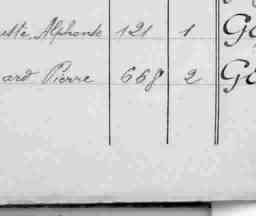 ette, Alphonse 121 1 Ga
ard Pierre 668 2 Ge